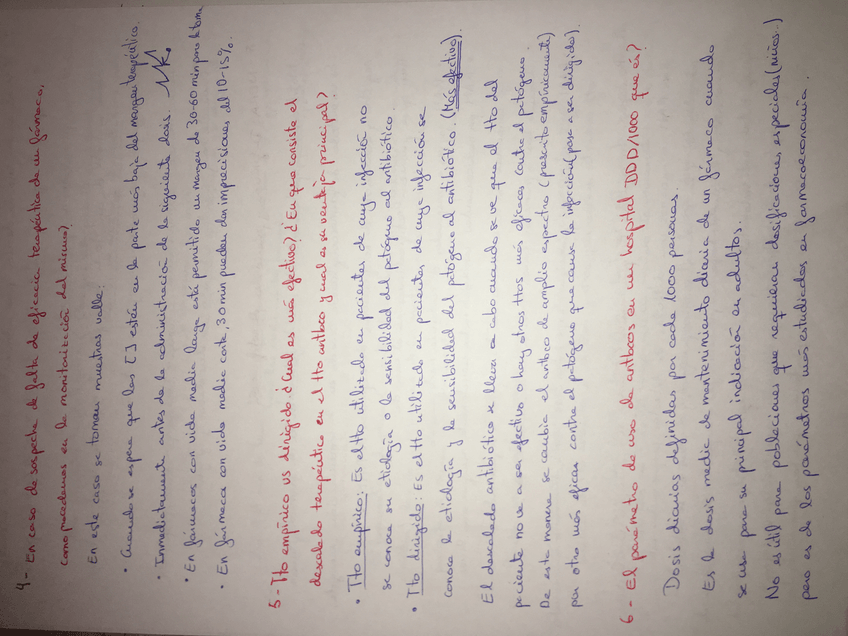 4- En caso de sospecha de falta de eficacia terapéutica de un fármaco,
como procedemos en la monitorización del mismo?
En este caso se toman muestras valle:
• Cuando se espera que las [ ] estén en la parte más baja del margen terapéutico.
• Inmediatamente antes de la administración de la siguiente dosis.
• En fármacos con vida media larga está permitido un margen de 30-60 min para la toma
• En fármaco con vida media corta, 30 min pueden dar imprecisiones del 10-15%.
5- Tto empírico vs dirigido. ¿Cual es más efectivo? ¿En que consiste el
desescalado terapéutico en el tto antbco y cual es su ventaja principal?
• Tto empírico: Es el tto utilizado en pacientes de cuya infección no
se conoce su etiología o la sensibilidad del patógeno al antibiótico
• Tto dirigido: Es el tto utilizado en pacientes de cuya infección se
conoce la etiología y la sensibilidad del patógeno al antibiótico. (Más efectivo).
El descalado antibiótico se lleva a cabo cuando se ve que el tto del
paciente no va a ser efectivo o hay otros ttos más eficaces contra el patógeno.
De esta manera se cambia el antbco de amplio espectro (prescrito empíricamente)
por otro más eficaz contra el patógeno que cause la infección (pasa a ser dirigido).
6- El parámetro de uso de antbcos en un hospital DDD/1000 que és?
Dosis diarias definidas por cada 1000 personas.
Es la dosis media de mantenimiento diaria de un fármaco cuando
se usa para su principal indicación en adultos.
No es útil para poblaciones que requieran dosificaciones especiales (niños..)
pero es de los parámetros más estudiados en farmacoeconomía.